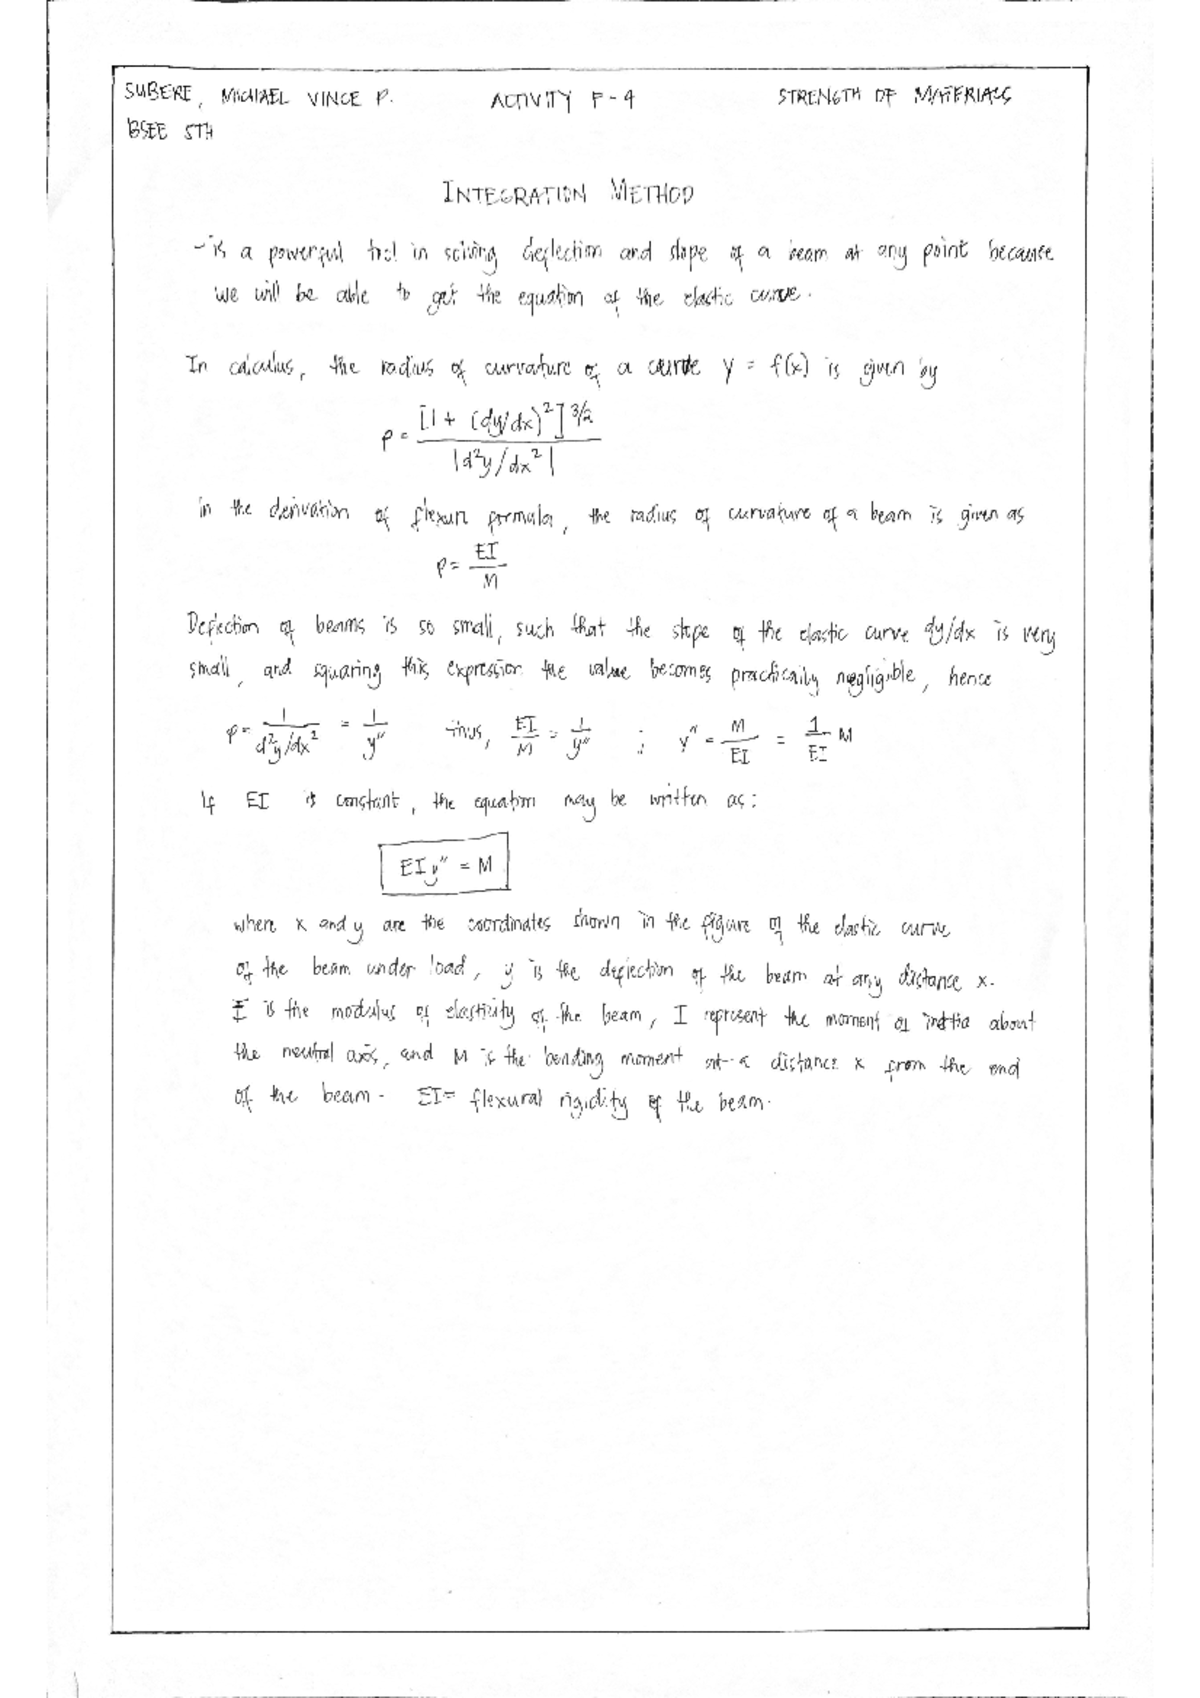 SUBERE, MICHAEL VINCE P. ACTIVITY F-4 STRENGTH OF MATERIALS
BSEE 5TH
INTEGRATION METHOD
- is a powerful tool in solving deflection and slope of a beam at any point because
we will be able to get the equation of the elastic curve.
In calculus, the radius of curvature of a curve y = f(x) is given by
ρ = [1 + (dy/dx)²]^3/2 / |d²y/dx²|
in the derivation of flexure formula, the radius of curvature of a beam is given as
ρ = EI/M
Deflection of beams is so small, such that the slope of the elastic curve dy/dx is very
small, and squaring this expression the value becomes practically negligible, hence
ρ = 1/(d²y/dx²) = 1/y" thus, EI/M = 1/y" ; y" = M/EI = 1/EI M
If EI is constant, the equation may be written as:
EIy" = M
where x and y are the coordinates shown in the figure of the elastic curve
of the beam under load, y is the deflection of the beam at any distance x.
E is the modulus of elasticity of the beam, I represent the moment of inertia about
the neutral axis, and M is the bending moment at a distance x from the end
of the beam. EI = flexural rigidity of the beam.